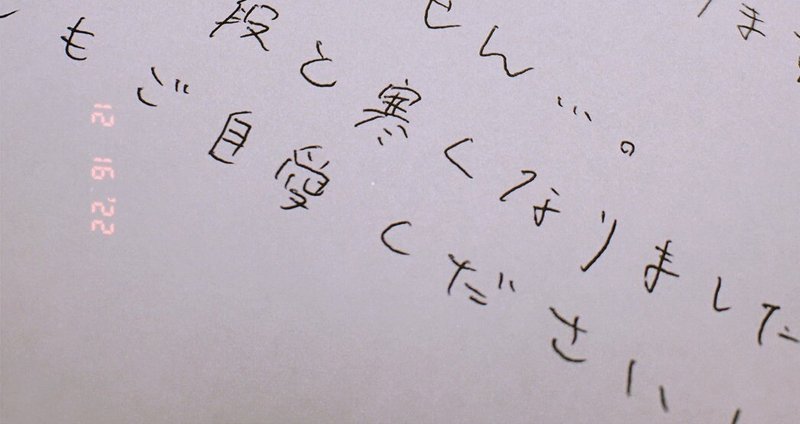 ません…。
段と寒くなりました
もご自愛ください
12 16 '22